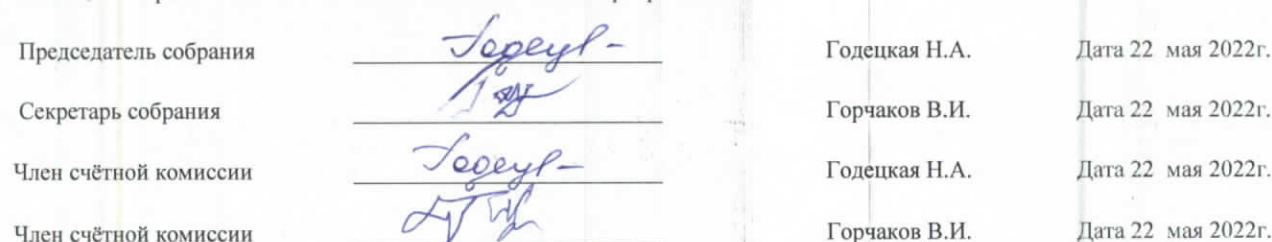 Председатель собрания Годецкая Н.А. Дата 22 мая 2022г.
Секретарь собрания Горчаков В.И. Дата 22 мая 2022г.
Член счётной комиссии Годецкая Н.А. Дата 22 мая 2022г.
Член счётной комиссии Горчаков В.И. Дата 22 мая 2022г.